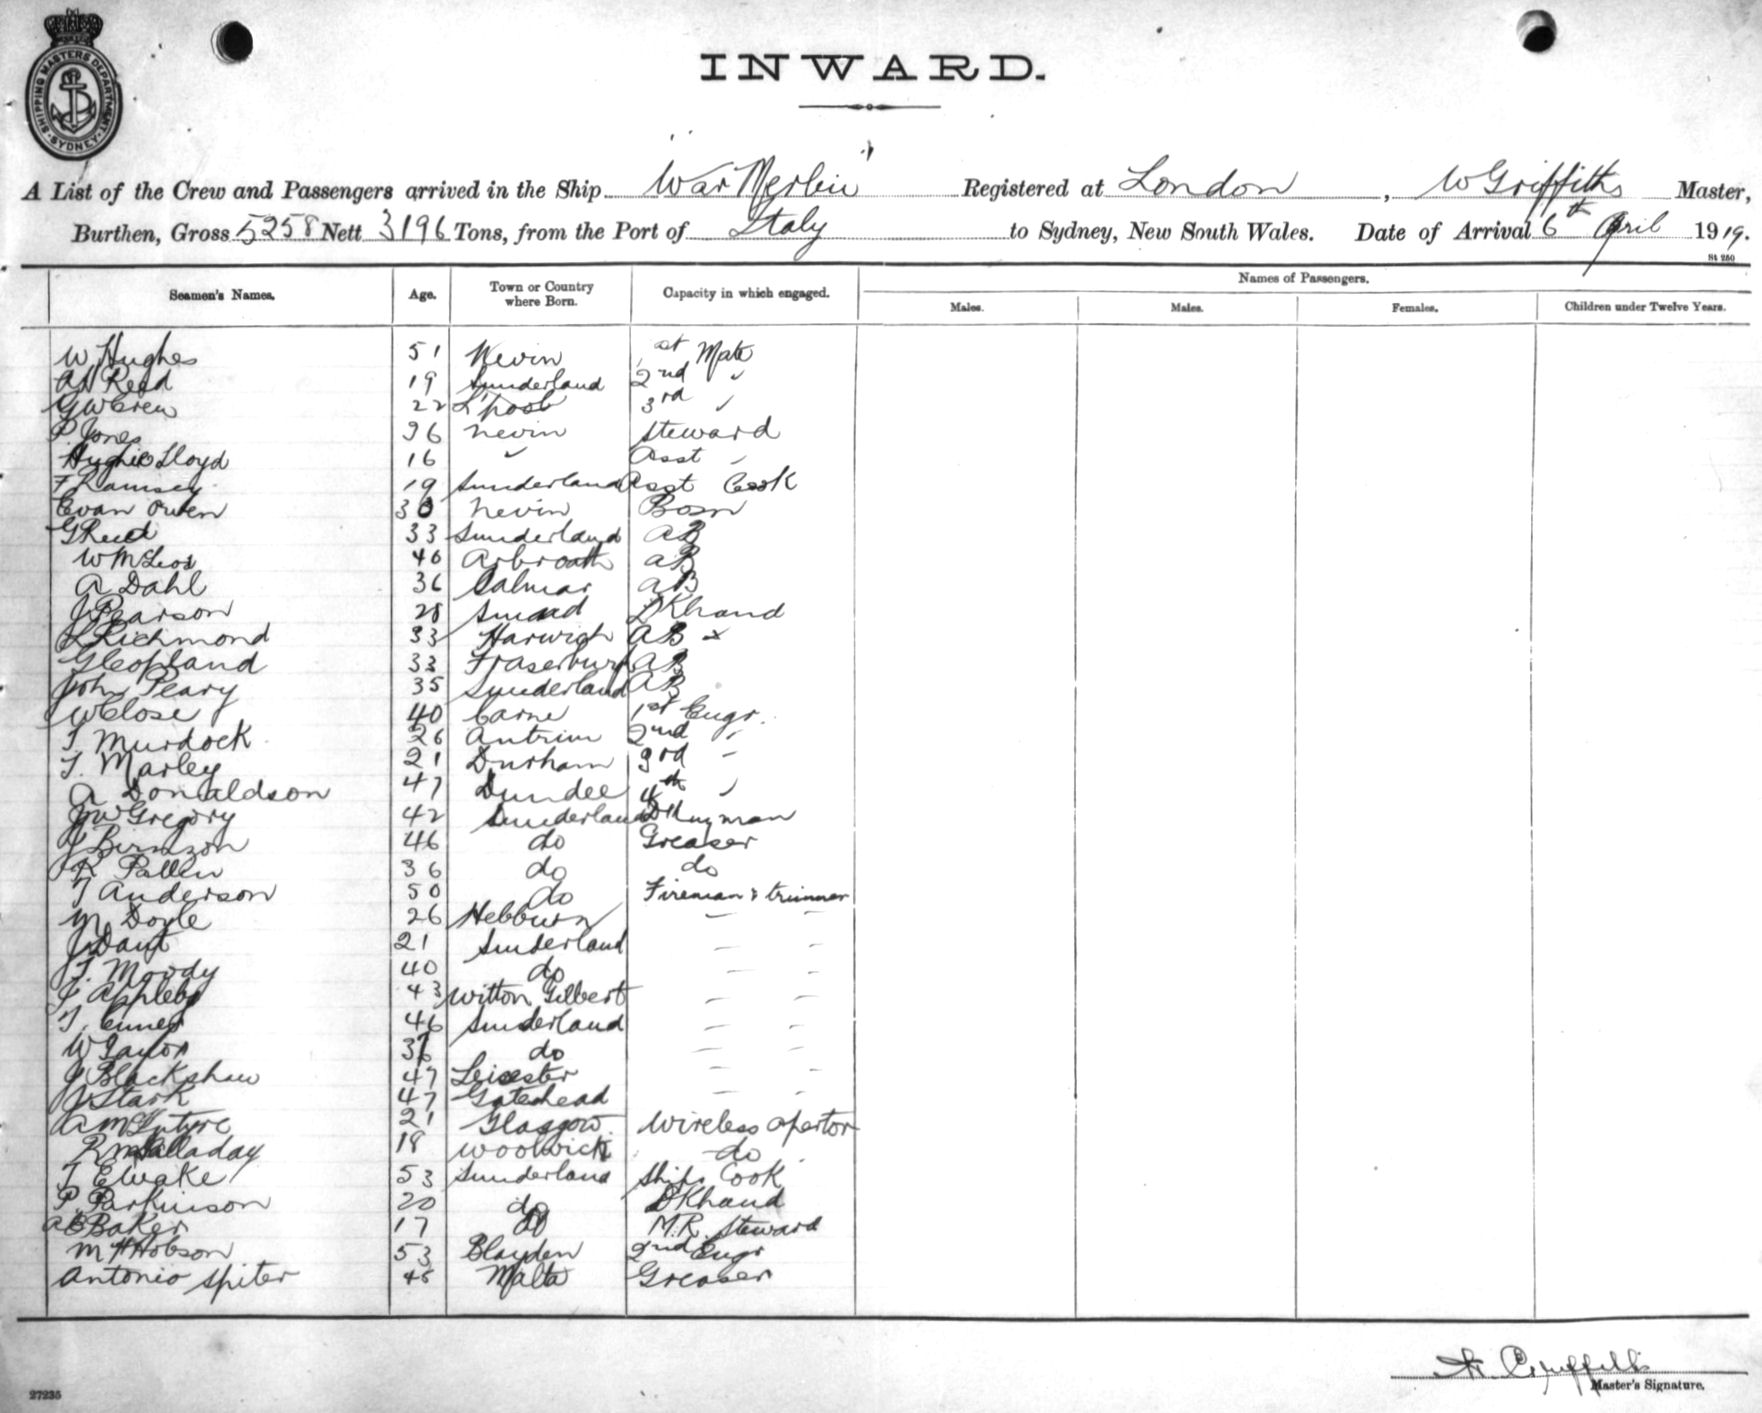 SHIPPING MASTERS DEPARTMENT. SYDNEY.
INWARD.
A List of the Crew and Passengers arrived in the Ship "War Merlin" Registered at London, W Griffiths Master,
Burthen, Gross 5258 Nett 3196 Tons, from the Port of Italy to Sydney, New South Wales. Date of Arrival 6th April 1919.
St 250
Seamen's Names. Age. Town or Country where Born. Capacity in which engaged. Names of Passengers.
Males. Males. Females. Children under Twelve Years.
W Hughes 51 Nevin 1st Mate
Reed 19 Sunderland 2nd "
G W Crew 22 L'pool 3rd "
P. Jones 36 Nevin Steward
Hughie Lloyd 16 " Asst "
F Ramsey 19 Sunderland Asst Cook
Evan Owen 30 Nevin Bosn
G Reed 33 Sunderland AB
W McLeod 40 Arbroath AB
A Dahl 36 Kalmar AB
J Pearson 28 DKhand
L Richmond 33 Harwich AB x
G Copland 33 Fraserburg AB
John Peary 35 Sunderland AB
W Close 40 1st Engr.
T Murdock 26 Antrim 2nd "
T. Marley 21 Durham 3rd "
A Donaldson 47 Dundee 4th "
J W Gregory 42 Sunderland Dkeyman
J 46 do Greaser
R Pallen 36 do do
T Anderson 50 do Fireman & trimmer
M Doyle 26 Hebburn — —
J 21 Sunderland — —
J. Moody 40 do — —
J Appleby 43 Witton Gilbert — —
T. 46 Sunderland — —
W Taylor 37 do — —
J Blackshaw 47 Leicester — —
J Stark 47 Gateshead — —
A McIntyre 21 Glasgow. Wireless opertor
R 18 Woolwich do
T Elwake 53 Sunderland Ships Cook
P. Parkinson 20 do DKhand
A E Baker 17 do M.R. Steward
M H Hobson 53 Blayden 2nd Engr
Antonio Spiter 45 Malta Greaser
W Griffiths
Master's Signature.
27235